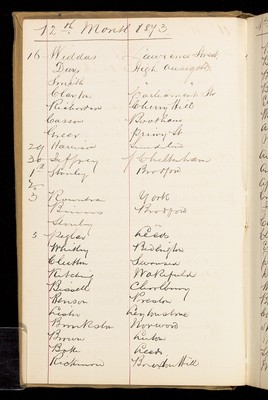 12th Month 1893
16 Weddas Lawrence Street
Day High Ousegate
Smith " "
Clayton Parliament St
Richardson Cherry Hill
Casson Bootham
Greer Priory St
29 Harrison
30 Jeffrey Cheltenham
1st Stanley Bradford
3 Rowntree York
Bradford
Stanley "
5 Leeds
Whitley Bridlington
Clayton
Kitching Wakefield
Bissell
Benson Preston
Lester Leytonstone
Brookston Norwood
Brown Luton
Leeds
Rickman Brixton Hill